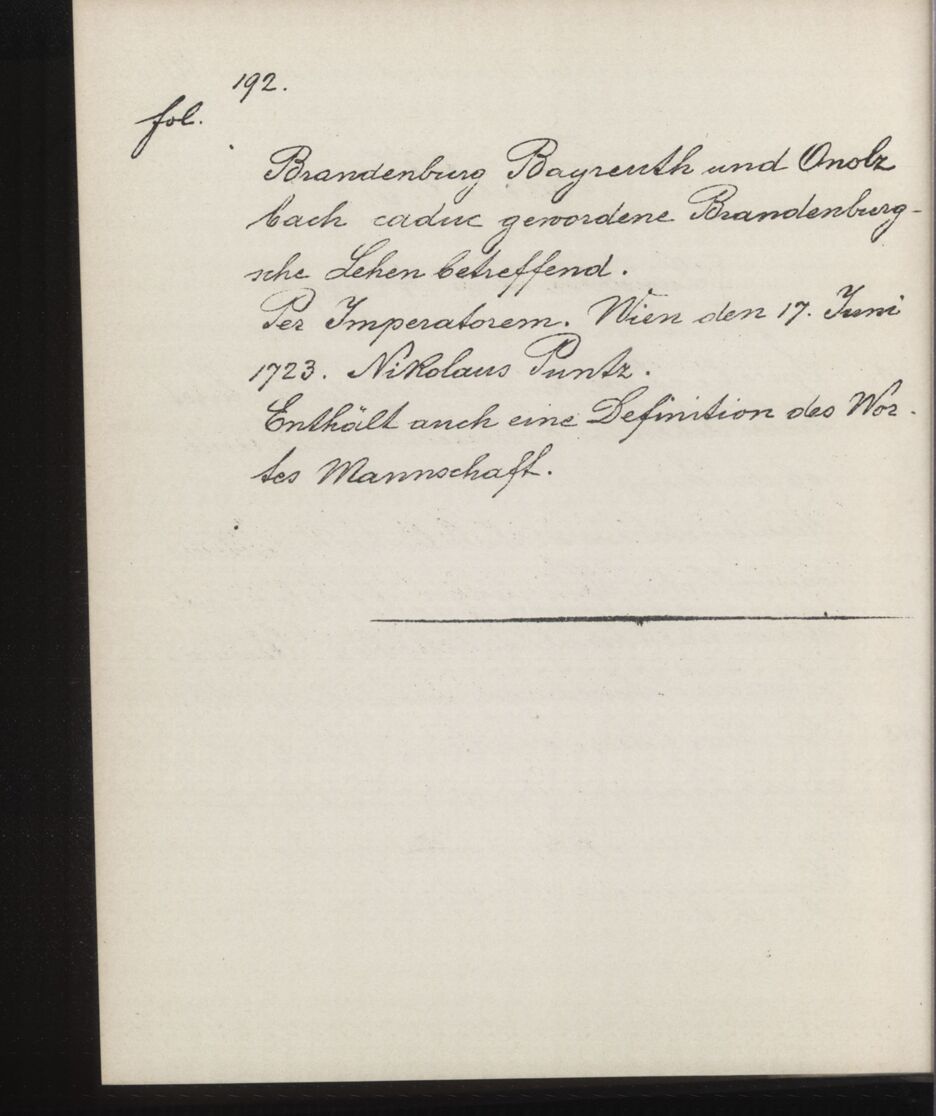 192.
fol.
Brandenburg Bayreuth und Onolz
bach caduc gewordene Brandenburg-
sche Lehen betreffend.
Per Imperatorem. Wien den 17. Juni
1723. Nikolaus Puntz.
Enthält auch eine Definition des Wor-
tes Mannschaft.